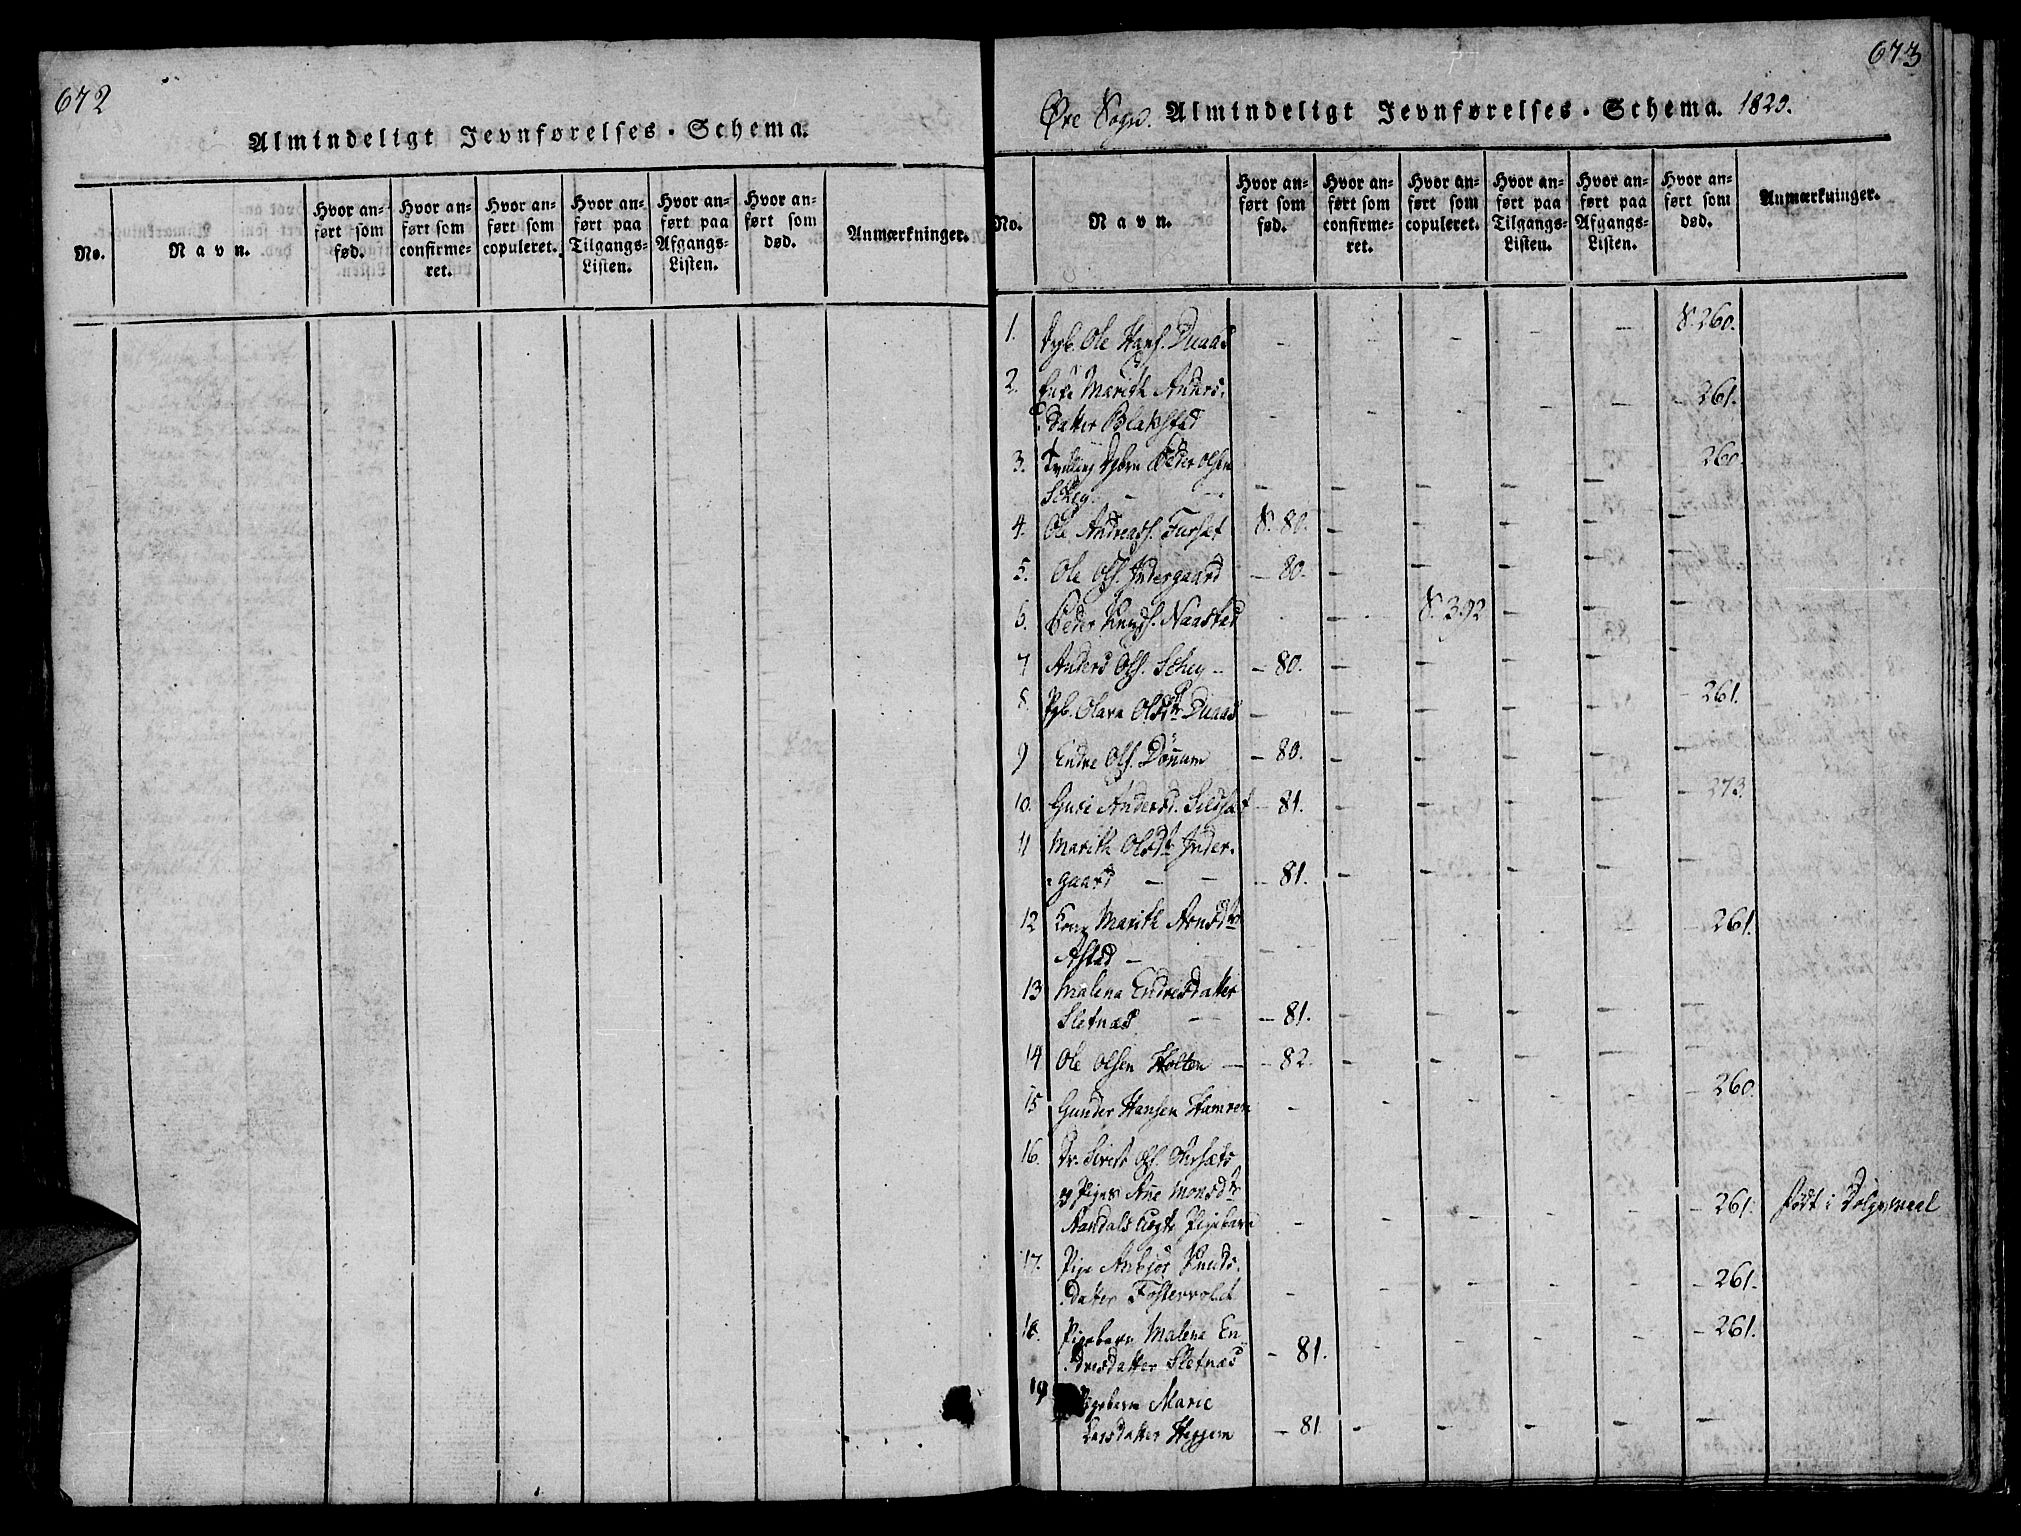 672
Almindeligt Jevnførelses-Schema.
No.
Navn.
Hvor an-
ført som
fød.
Hvor an-
ført som
confirme-
ret.
Hvor an-
ført som
copuleret.
Hvor an-
ført paa
Tilgangs-
Listen.
Hvor an-
ført paa
Afgangs-
Listen.
Hvor an-
ført som
død.
Anmærkninger.
673
Øre Sogn. Almindeligt Jevnførelses-Schema. 1820.
No.
Navn.
Hvor an-
ført som
fød.
Hvor an-
ført som
confirme-
ret.
Hvor an-
ført som
copuleret.
Hvor an-
ført paa
Tilgangs-
Listen.
Hvor an-
ført paa
Afgangs-
Listen.
Hvor an-
ført som
død.
Anmærkninger.
1. Ole Hans. Duaas - - - - - S. 260.
2. Enke Marith Anders-
datter Blakstad - - - - - 261.
3. Peder Olsen
Schey - - - - - 260.
4. Ole Andreass. Furset S. 80. - - - - -
5. Ole Ols. Indergaard - 80. - - - - -
6. Peder Naastad - - S. 392 - - -
7 Anders Ols. Schey - 80. - - - - -
8 Pgb. Olava Olsdtr Duaas - - - - - 261.
9 Endre Ols. Dønnum - 80. - - - - -
10. Guri Andersd. Sildset - 81. - - - - 273.
11 Marith Olsdtr Inder-
gaard - - - 81. - - - - -
12 Kone Marith Arnsdtr
Astad - - - - - - 261.
13 Malena Endresdatter
Sletnæs - - 81. - - - - -
14 Ole Olsen Holten - - 82. - - - - -
15 Gunder Hansen Hamren - - - - - 260.
16. Dr. Sivert Ols.
og Piges Ane Monsdtr
Pigebarn - - - - - - 261. født i Dølgsmaal
17. Pige Anbjør Knuds-
datter Fostervold - - - - - - 261.
18. Pigebarn Malena En-
dresdatter Sletnæs - 81. - - - - - 261.
19 Pigebarn Marie
Larsdatter Heggem - 81. - - - - -